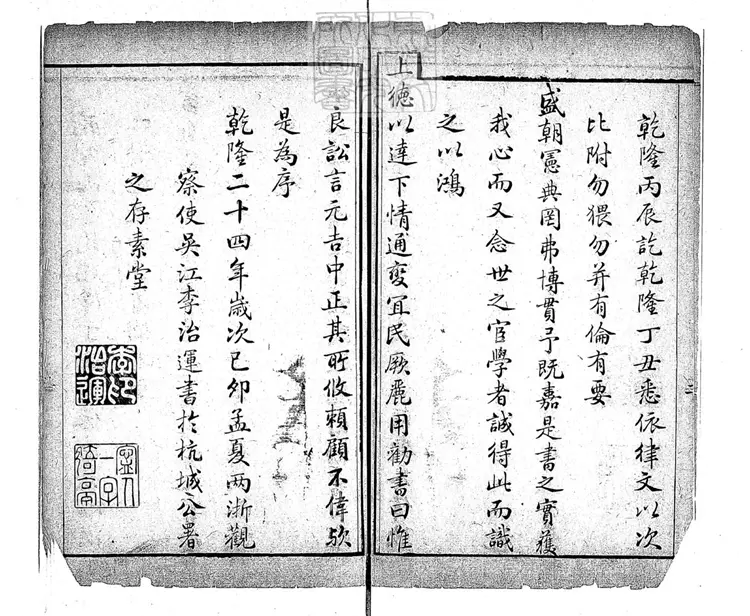 乾隆丙辰訖乾隆丁丑悉依律文以次
比附勿猥勿并有倫有要
盛朝憲典罔弗博貫予既嘉是書之實獲
我心而又念世之官學者誠得此而識
之以鴻
上德以達下情通變宜民厥麗用勸書曰惟
良訟言元吉中正其所攸賴顧不偉歟
是為序
乾隆二十四年歲次己卯孟夏两浙觀
察使吴江李治運書於杭城公署
之存素堂
李治運印